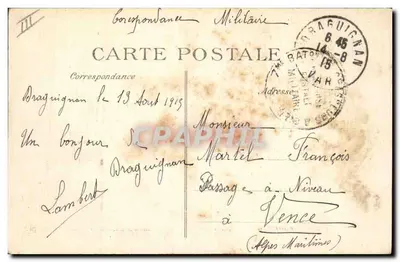 III
Correspondance Militaire
CARTE POSTALE
Correspondance
Adresse
DRAGUIGNAN
6 45
14-8
15
VAR
Draguignan le 13 Août 1915
Un bonjour
de
Draguignan
Lambert
Monsieur
Martel François
Passage à Niveau
à
Vence
(Alpes Maritimes)